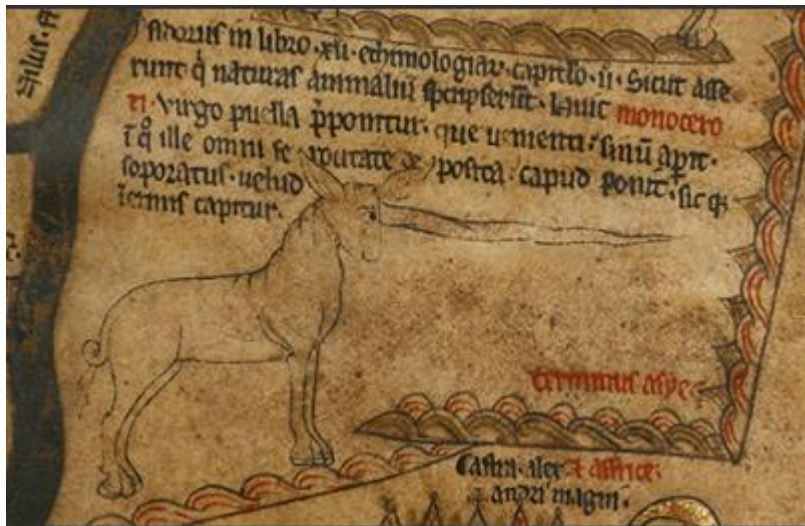 Silus · fl
sidorus in libro · xii · ethimologiaꝝ · capitlo · ii · Sicut asse
runt q̇ naturas animaliū sc̄pserūt · huic monocero
ti · virgo puella p̄ponitur · que uenienti · sinū aꝑit ·
ī q° ille omni fe posita · capud ponit · sic qꝫ
soporatus · uelud
īermis capitur ·
terminus asye
Castra · alex
⁊ affrice ·
andri magni ·